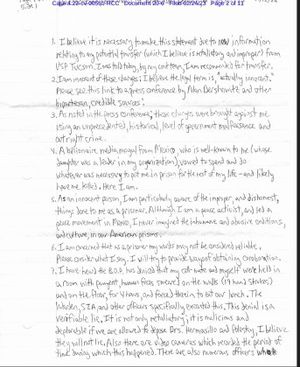 Case 4:22-cv-00091-RCC Document 20-6 Filed 02/24/23 Page 2 of 11
1. I believe it is necessary to make this statement due to new information
relating to my potential transfer (which I believe is retaliatory and improper) from
USP Tucson. I was told, by my unit team, I am recommended for transfer.
2. I am innocent of these charges; I believe the legal term is, "actually innocent."
Please see this link to a press conference by Alan Dershowitz and other
bipartisan, credible sources:
3. As noted in the press conference, these charges were brought against me
using an unprecedented, historical, level of government malfeasance and
outright crime.
4. A billionaire media mogul from Mexico, who is well-known to me (whose
daughter was a leader in my organization), vowed to spend and do
whatever was necessary to put me in prison for the rest of my life-and likely
have me killed. Here I am.
5. As an innocent person, I am particularly aware of the improper, and dishonest,
things done to me as a prisoner. Although I am a peace activist, and led a
peace movement in Mexico, I never imagined the inhumane and abusive conditions,
and culture, in our American prisons.
6. I am concerned that as a prisoner my words may not be considered reliable.
Please consider what I say. I will try to provide ways of obtaining corroboration.
7. I have heard the B.O.P. has denied that my cell-mate and myself were held in
a room with pungent, human feces smeared on the walls (it had streaks)
and on the floor, for 4 hours, and forced therein to eat our lunch. The
Warden, SIA, and other officers specifically executed this. This denial is a
verifiable lie. It is not only retaliatory; it is malicious and
deplorable. If we are allowed to depose Drs. Hermosillo and Pelotky, I believe
they will not lie. Also there are video cameras which recorded the period of
time during which this happened. There are also numerous officers who